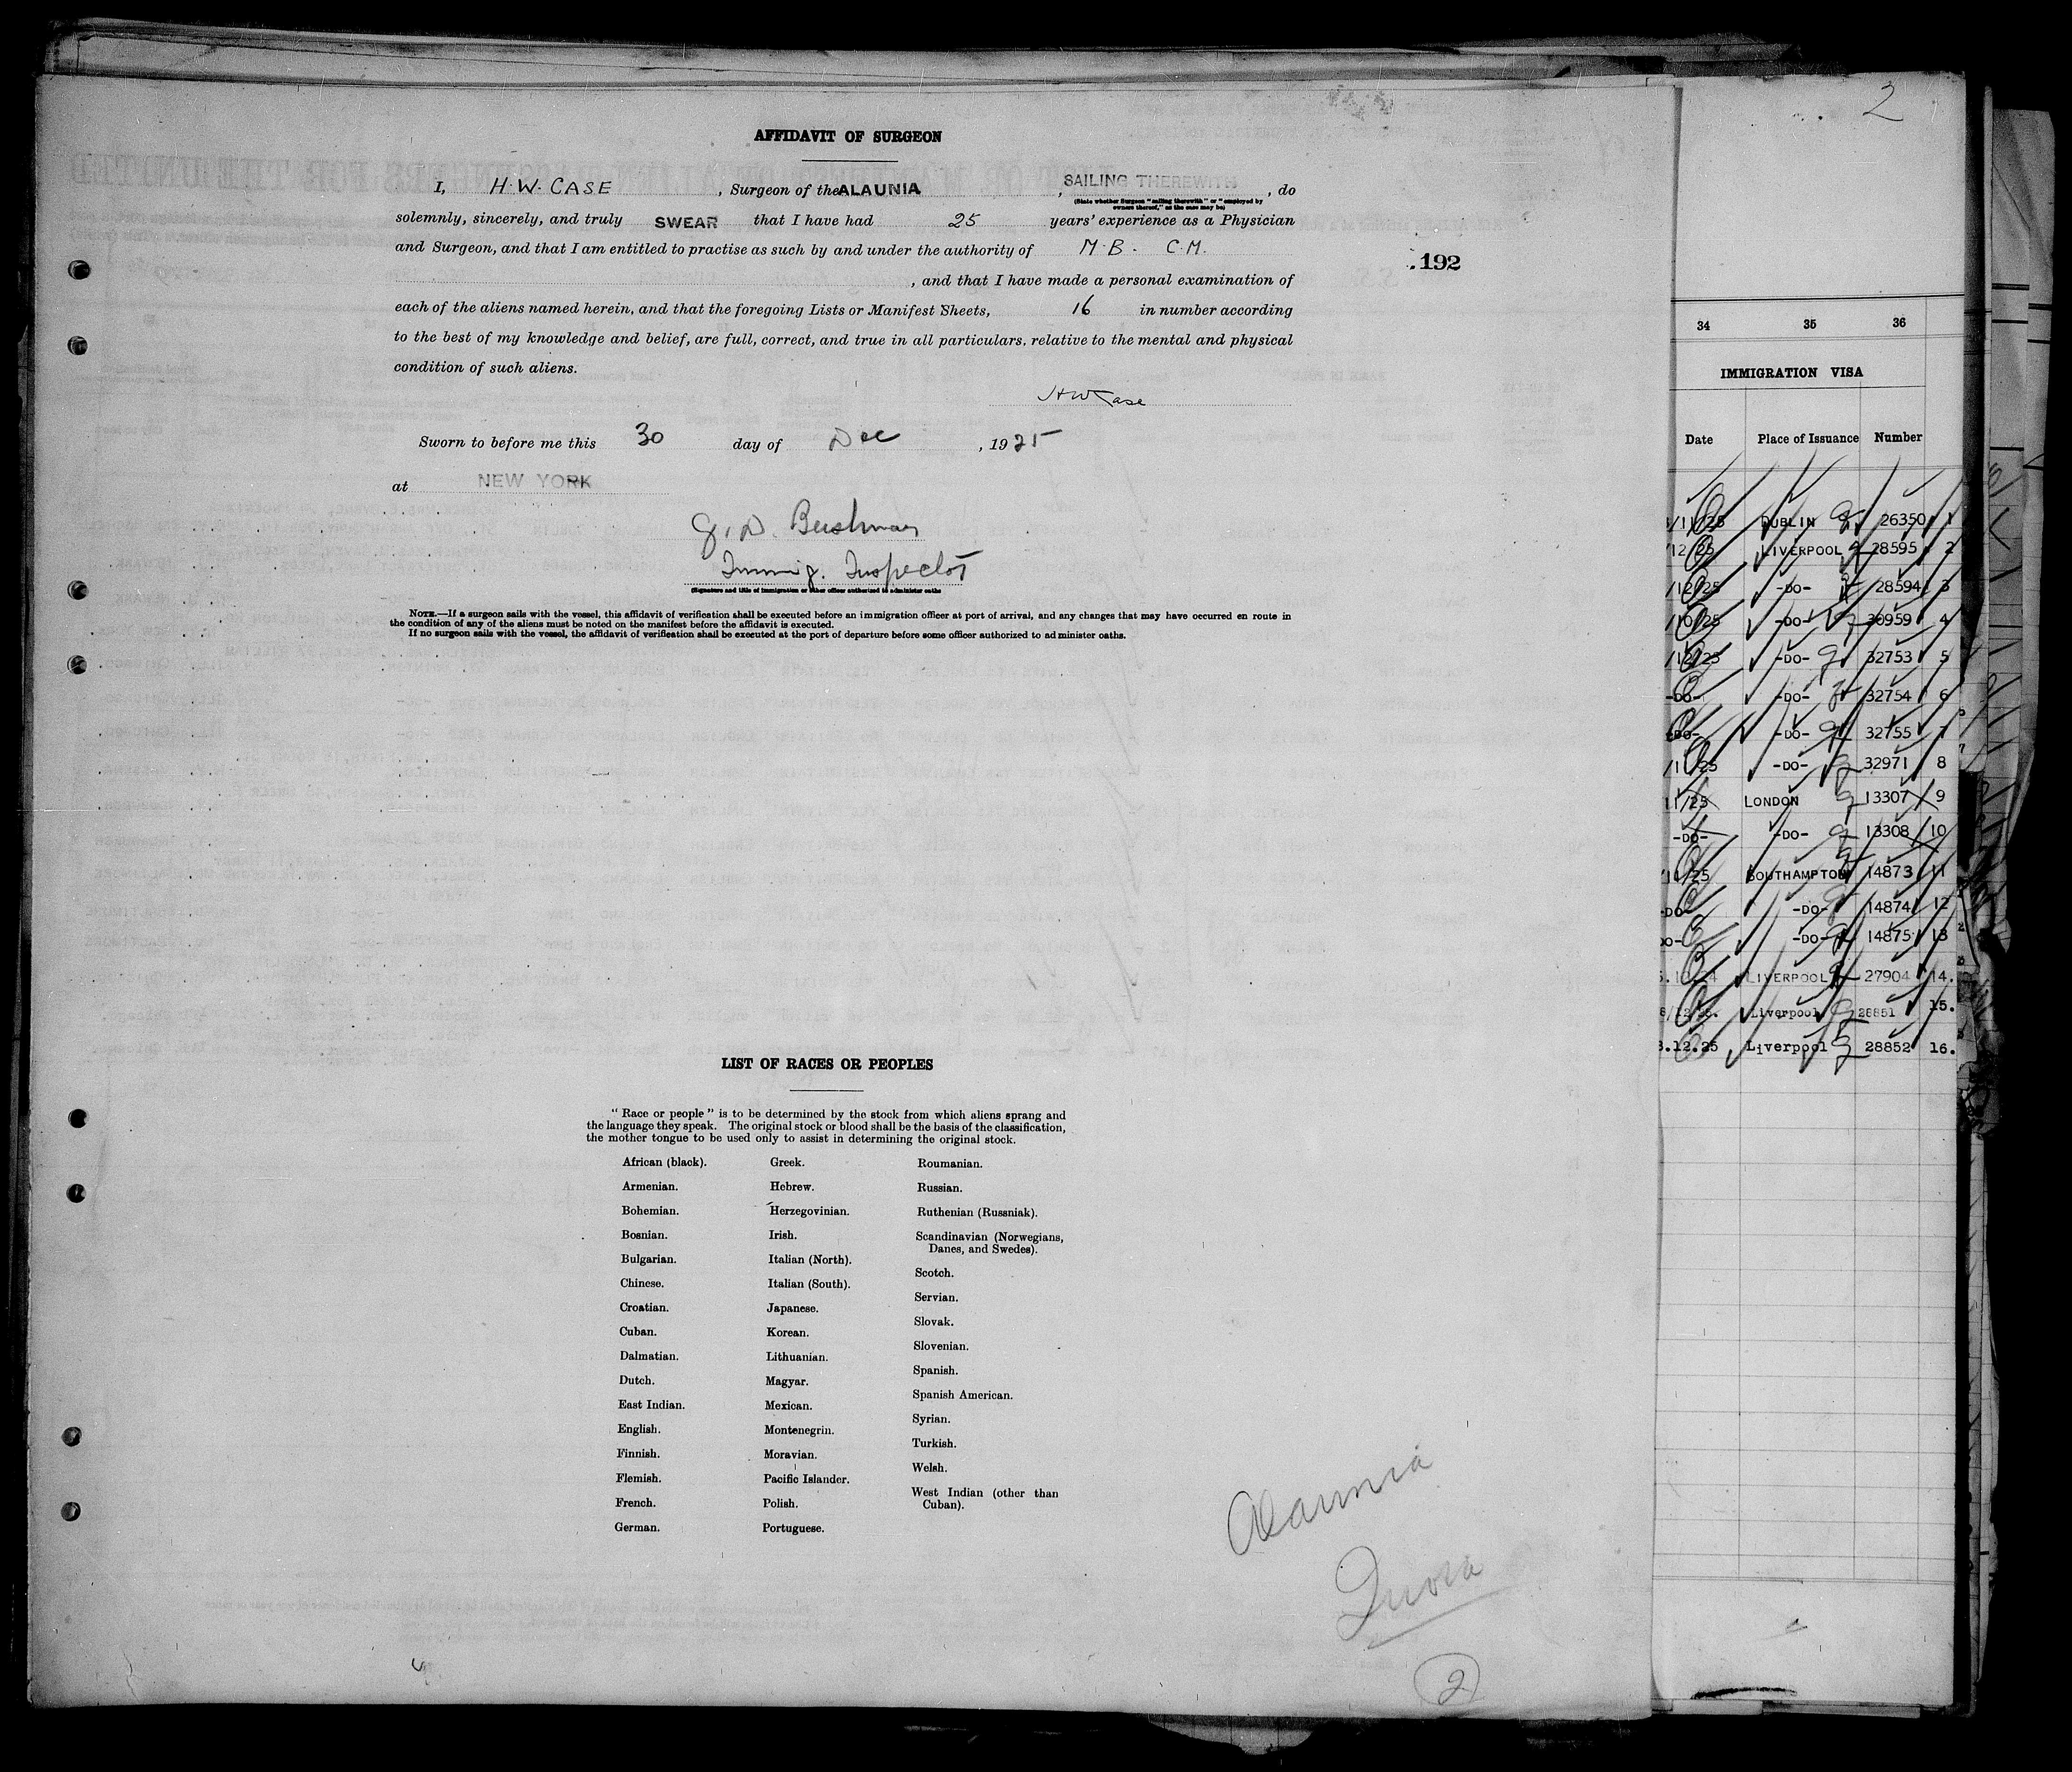 AFFIDAVIT OF SURGEON
I, H. W. CASE, Surgeon of the ALAUNIA, SAILING THEREWITH, do
(State whether Surgeon "sailing therewith" or "employed by
owners thereof," as the case may be)
solemnly, sincerely, and truly SWEAR that I have had 25 years' experience as a Physician
and Surgeon, and that I am entitled to practise as such by and under the authority of M.B. C.M.
, and that I have made a personal examination of
each of the aliens named herein, and that the foregoing Lists or Manifest Sheets, 16 in number according
to the best of my knowledge and belief, are full, correct, and true in all particulars, relative to the mental and physical
condition of such aliens.
HWCase
Sworn to before me this 30 day of Dec, 1925
at NEW YORK
Immig. Inspector
(Signature and title of immigration or other officer authorized to administer oaths
NOTE.—If a surgeon sails with the vessel, this affidavit of verification shall be executed before an immigration officer at port of arrival, and any changes that may have occurred en route in
the condition of any of the aliens must be noted on the manifest before the affidavit is executed.
If no surgeon sails with the vessel, the affidavit of verification shall be executed at the port of departure before some officer authorized to administer oaths.
LIST OF RACES OR PEOPLES
"Race or people" is to be determined by the stock from which aliens sprang and
the language they speak. The original stock or blood shall be the basis of the classification,
the mother tongue to be used only to assist in determining the original stock.
African (black).
Armenian.
Bohemian.
Bosnian.
Bulgarian.
Chinese.
Croatian.
Cuban.
Dalmatian.
Dutch.
East Indian.
English.
Finnish.
Flemish.
French.
German.
Greek.
Hebrew.
Herzegovinian.
Irish.
Italian (North).
Italian (South).
Japanese.
Korean.
Lithuanian.
Magyar.
Mexican.
Montenegrin.
Moravian.
Pacific Islander.
Polish.
Portuguese.
Roumanian.
Russian.
Ruthenian (Russniak).
Scandinavian (Norwegians,
Danes, and Swedes).
Scotch.
Servian.
Slovak.
Slovenian.
Spanish.
Spanish American.
Syrian.
Turkish.
Welsh.
West Indian (other than
Cuban).
Alaunia
2
.192
2
34 35 36
IMMIGRATION VISA
Date Place of Issuance Number
/11/25 DUBLIN 26350 1
/12/25 LIVERPOOL 28595 2
/12/25 -DO- 28594 3
/10/25 -DO- 30959 4
/12/25 -DO- 32753 5
-DO- -DO- 32754 6
-DO- -DO- 32755 7
/11/25 -DO- 32971 8
11/25 LONDON 13307 9
-DO- -DO- 13308 10
/11/25 SOUTHAMPTON 14873 11
-DO- -DO- 14874 12
DO- -DO- 14875 13
LIVERPOOL 27904 14.
/12.25. Liverpool 28851 15.
.12.25 Liverpool 28852 16.